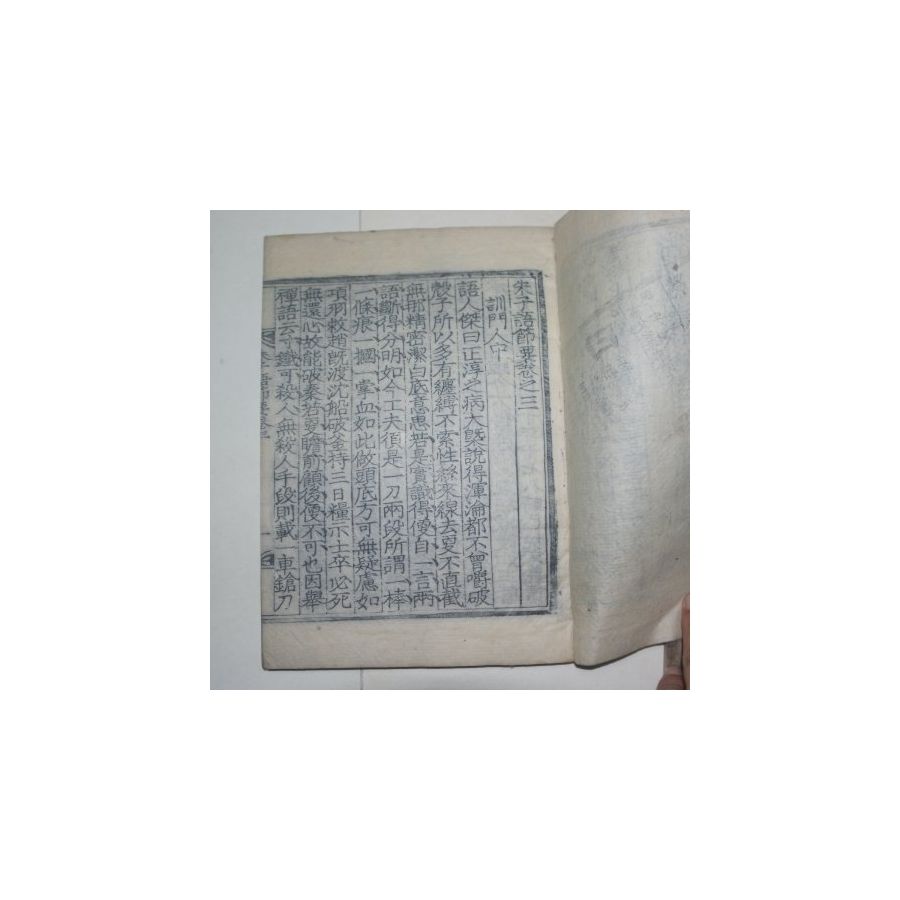 朱子語節要卷之三
訓門人中
語人傑曰正淳之病大槩說得渾淪都不曾嚼破
殼子所以多有纏縛不索性絲來線去更不直截
無那精密潔白底意思若是實識得便自一言兩
語斷得分明如今工夫須是一刀兩段所謂一棒
一條痕一摑一掌血如此做頭底方可無疑慮如
項羽救趙旣渡沈船破釜持三日糧示士卒必死
無還心故能破秦若更瞻前顧後便不可也因舉
禪語云寸鐵可殺人無殺人手段則載一車鎗刀